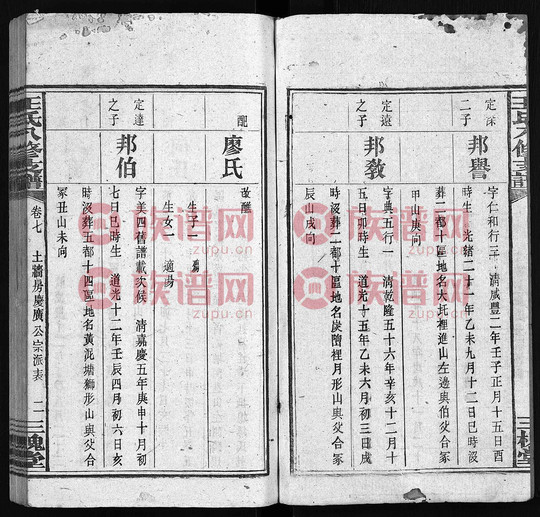 王氏八修支譜
三槐堂
定深
二子
邦譽
字仁和行三 清咸豐二年壬子正月十五日酉
時生 光緒二十一年乙未九月十二日巳時沒
葬二都十區地名大圫裡進山左邊與伯父合冢
甲山庚向
定遠
之子
邦敎
字典五行一 清乾隆五十六年辛亥十二月十
五日卯時生 道光十五年乙未六月初三日戌
時沒葬二都十區地名炭 裡月形山與父合冢
辰山戌向
配
廖氏
改醮
生子一
生女一 適易
定達
之子
邦伯
字美四舊譜載次候 清嘉慶五年庚申十月初
七日巳時生 道光十二年壬辰四月初六日亥
時沒葬五都十四區地名黃泥塘獅形山與父合
冢丑山未向
王氏八修支譜
卷七
土牆房慶廣公宗派表
三槐堂
族谱网
zupu.cn
族谱网
zupu.cn
族谱网
zupu.cn
族谱网
zupu.cn